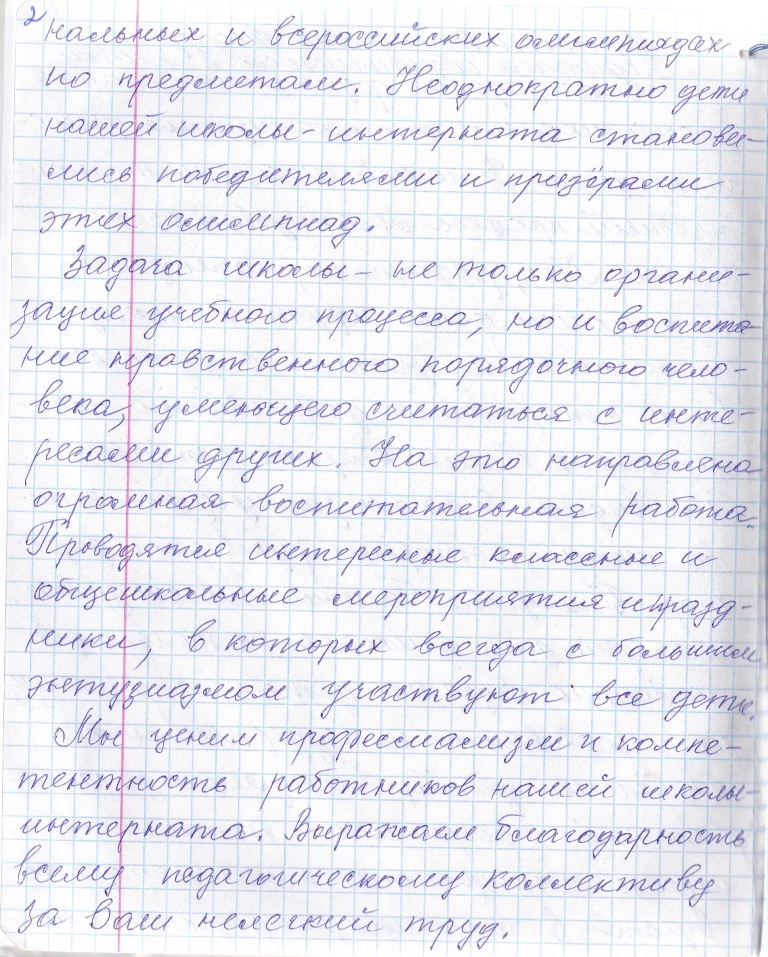 2
нальных и всероссийских олимпиадах
по предметам. Неоднократно дети
нашей школы-интерната станови-
лись победителями и призёрами
этих олимпиад.
Задача школы - не только органи-
зация учебного процесса, но и воспита-
ние нравственного порядочного чело-
века, умеющего считаться с инте-
ресами других. На это направлена
огромная воспитательная работа.
Проводятся интересные классные и
общешкольные мероприятия и празд-
ники, в которых всегда с большим
энтузиазмом участвуют все дети.
Мы ценим профессиализм и компе-
тентность работников нашей школы-
интерната. Выражаем благодарность
всему педагогическому коллективу
за Ваш нелегкий труд.